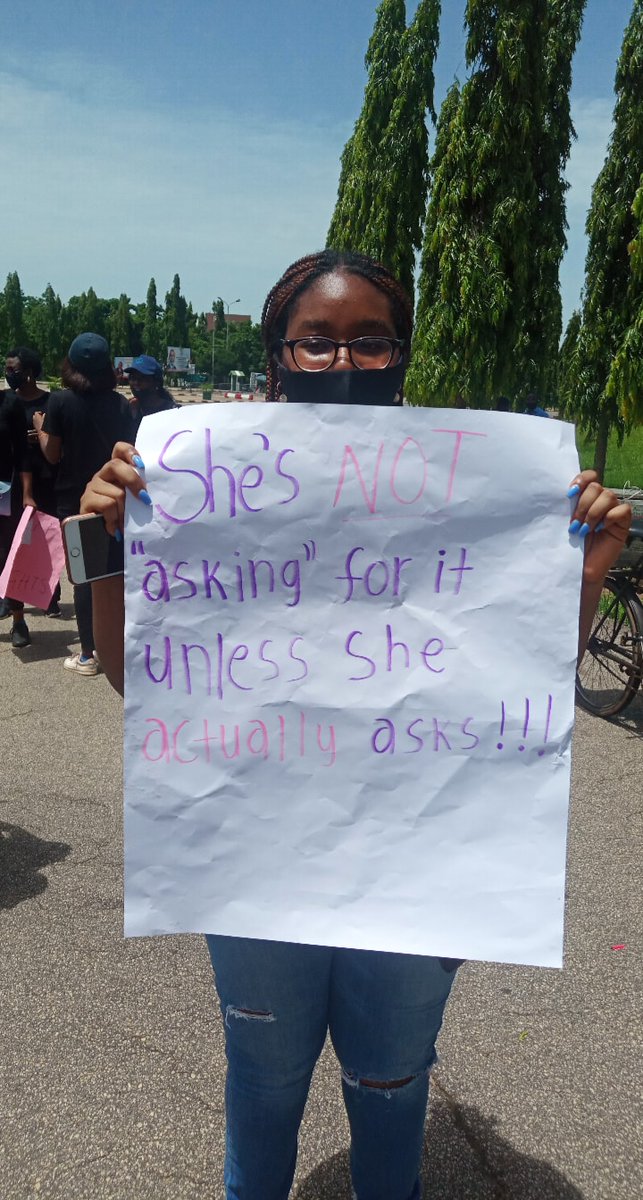 She's NOT
"asking" for it
unless she
actually asks!!!